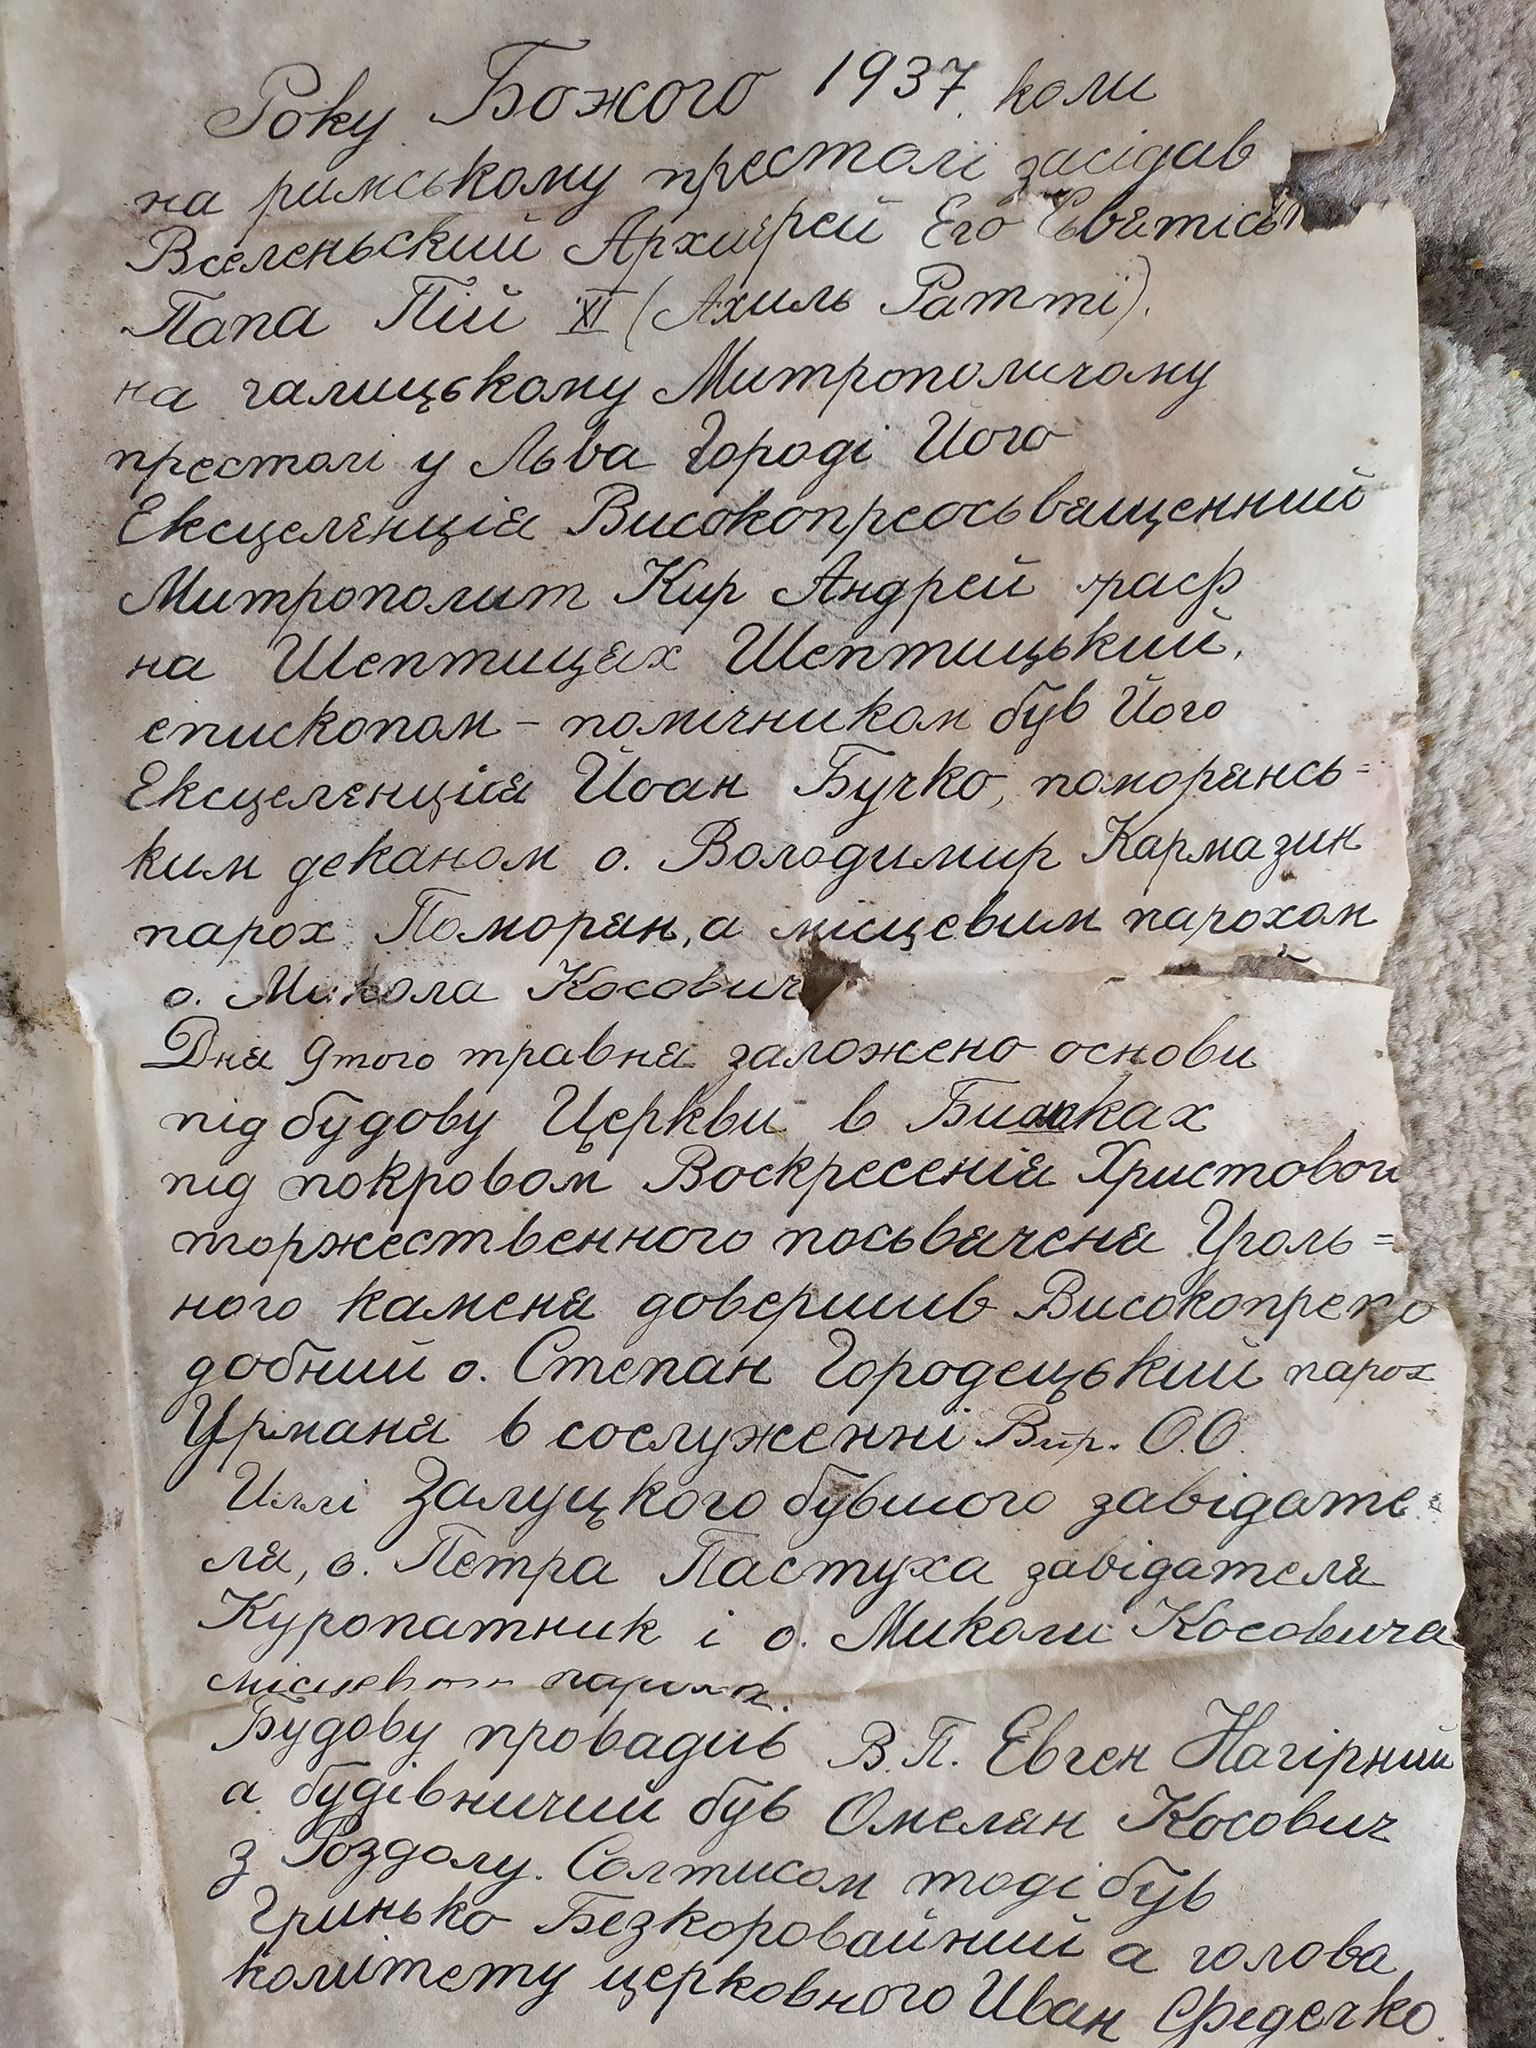 Року Божого 1937. коли
на римському престолі засідав
Вселеньский Архиєрей Его Сьвятість
Папа Пій XI (Ахиль Ратті).
на галицькому Митрополичому
престолі у Льва Городі Його
Ексцеленція Високопреосьвященний
Митрополит Кир Андрей граф
на Шептицях Шептицький,
епископом – помічником був Його
Ексцеленція Йоан Бучко, поморянсь=
ким деканом о. Володимир Кармазин
парох Поморян, а місцевим парохом
о. Микола Косович
Дня 9того травня заложено основи
під будову Церкви в
під покровом Воскресенія Христового
торжественного посьвячення Уголь=
ного каменя довершив Високопрепо
добний о. Степан Городецький парох
Урманя в сослуженні Впр. О.О.
Иллі Залуцкого бувшого завідате=
ля, о. Петра Пастуха завідателя
Куропатник і о. Миколи Косовича
місцевого пароха.
Будову провадив В.П. Евген Нагірний
а будівничий був Омелян Косович
з Роздолу. Солтисом тоді був
Гринько Безкоровайний а голова
комітету церковного Иван Федечко.